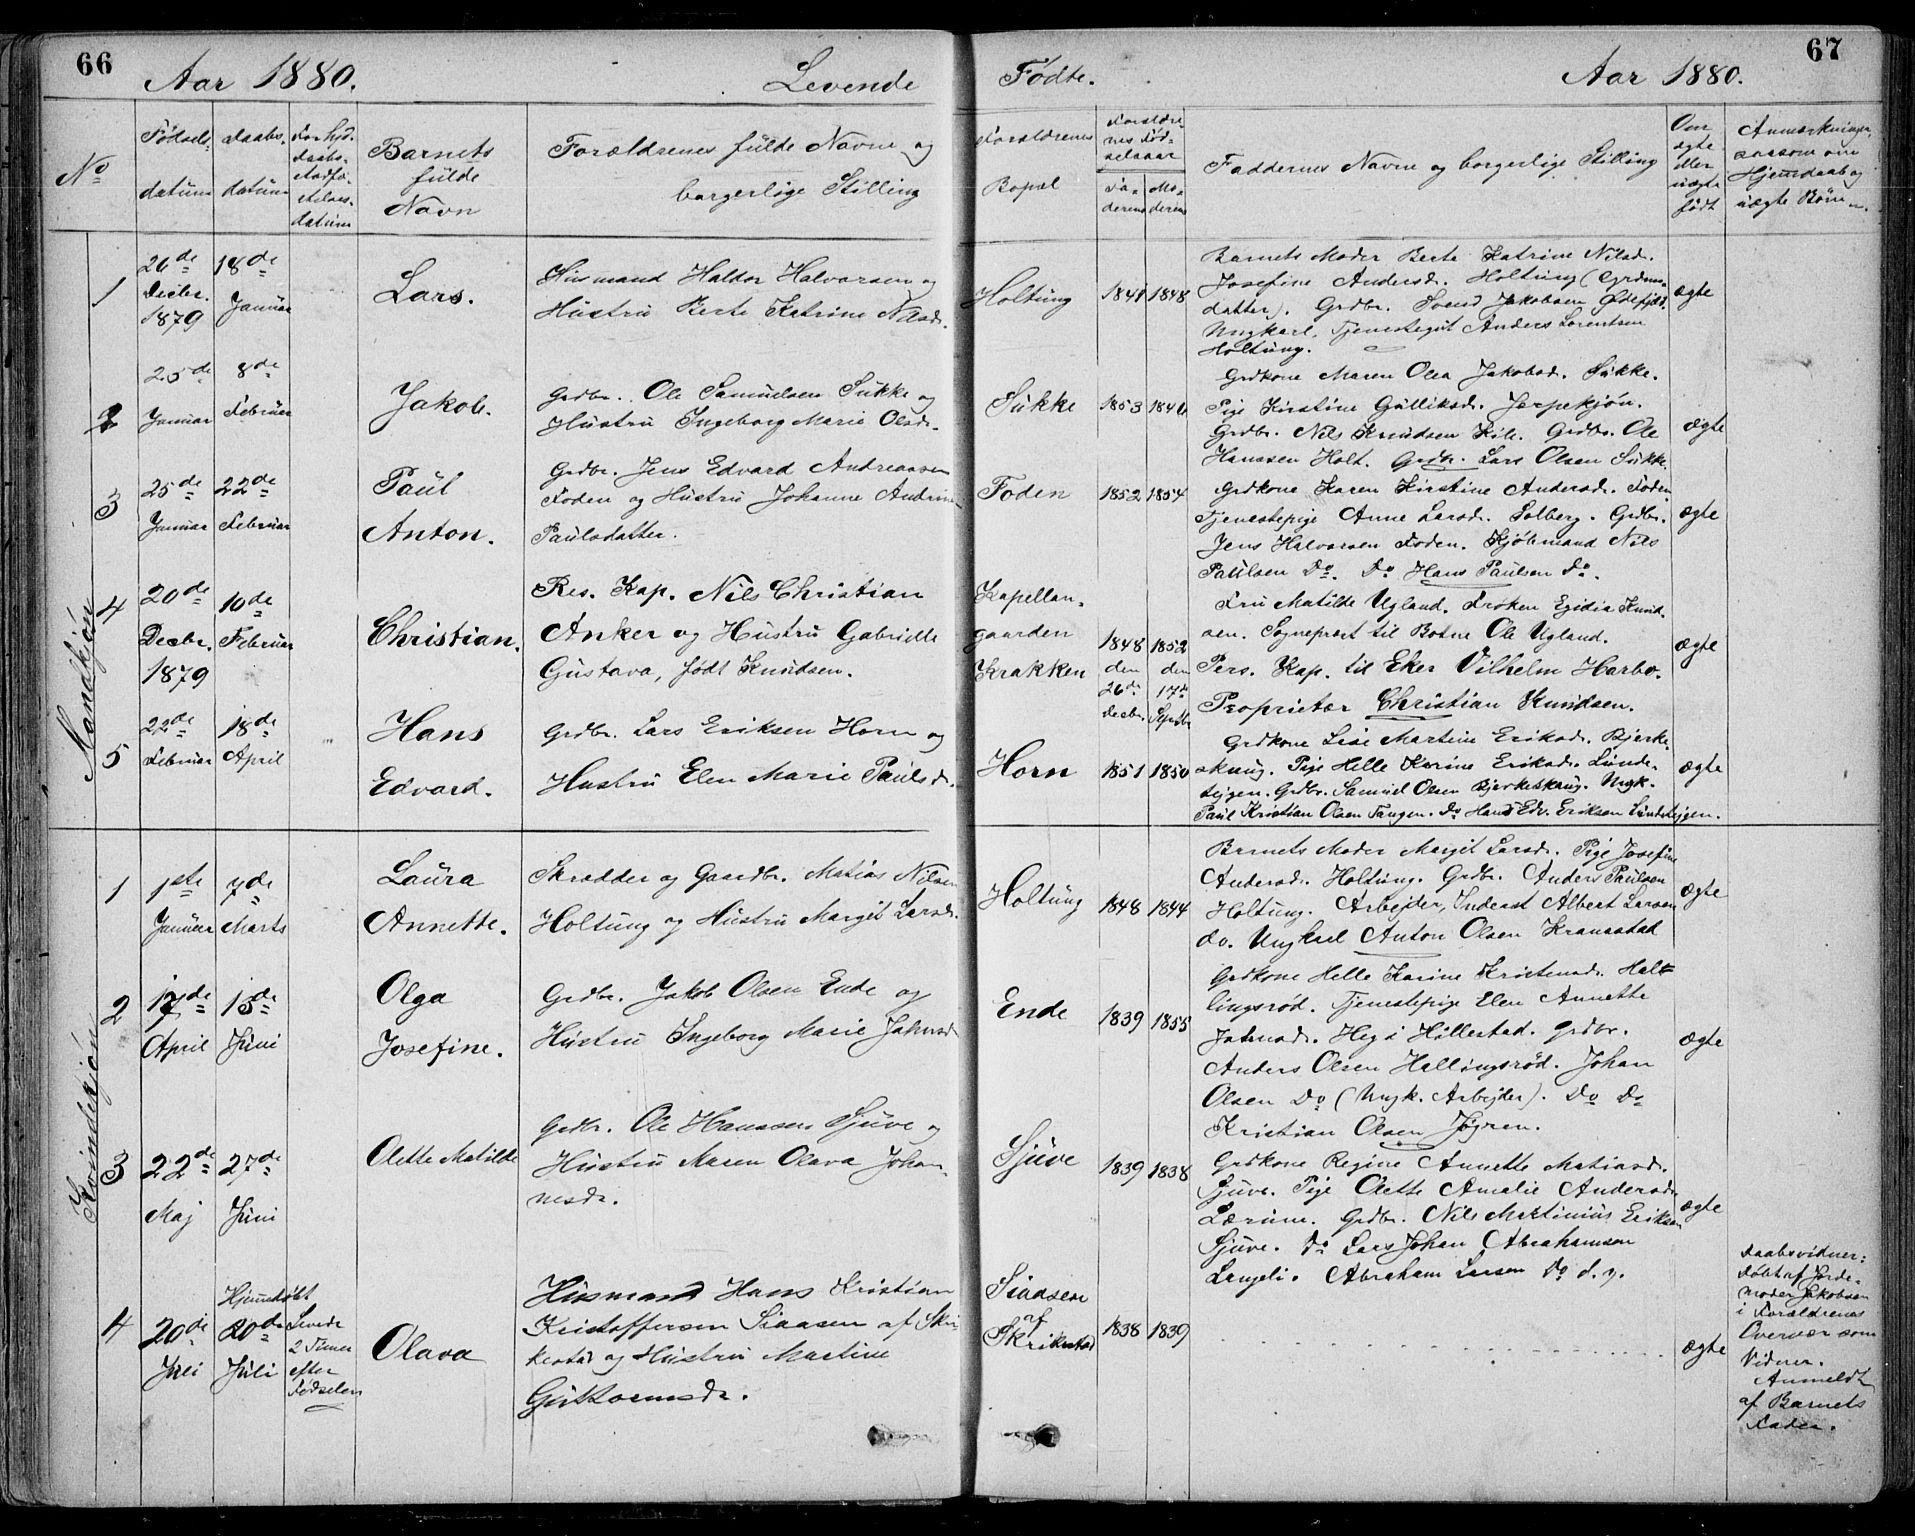 66
Aar 1880.
Levende
Fødte.
Aar 1880.
67
No
Fødsels- datum
Daabs- datum
Barnets fulde Navn
Forældrenes fulde Navne og
borgerlige Stilling
Forældrenes
Bopæl
Forældre-
nes Fød-
selsaar
Fa-
derens
Mo-
derens
Faddernes Navne og borgerlige Stilling
Om
ægte
eller
uægte
født
Anmærkninger,
saasom om
Hjemdaab og
uægte Børn
Mandkjøn
1
26de Decbr. 1879
18de Januar
Lars.
Husmand Haldor Halvorsen og
Hustru Berte Katrine Nilsd.
Holtung
1841
1848
Barnets Moder Berte Katrine Nilsd.
Josefine Andersd. Holtung (Grdm.
datter). Grdbr. Svend Jakobsen
Ungkarl, Tjenestegut Anders Lorentsen
Holtung.
ægte
2
25de Januar
8de Februar
Jakob.
Grdbr. Ole Samuelsen Sukke og
Hustru Ingeborg Marie Olsdr.
Sukke
1853
1846
Grdkone Maren Olea Jakobsd. Sukke.
Pige Kirstine Gulliksd. Jerpekjøn.
Grdbr. Nils Knudsen Grdbr. Ole
Hanssen Holt. Grdbr. Lars Olsen Sukke.
ægte
3
25de Januar
22de Februar
Paul
Anton.
Grdbr. Jens Edvard Andreassen
Foden og Hustru Johanne Andrine
Paulsdatter.
Foden
1852
1854
Grdkone Karen Kirstine Andersd. Foden
Tjenestepige Anne Larsd. Solberg. Grdbr.
Jens Halvorsen Foden. Kjøbmand Nils
Paulsen Do. Do Hans Paulsen Do.
ægte
4
20de Decbr. 1879
10de Februar
Christian.
Res. Kap. Nils Christian
Anker og Hustru Gabrielle
Gustava, født Knudsen.
Kapellan-
gaarden
Krakken
1848 den 26de Decbr.
1852 den 17de Septbr.
Fru Matilde Ugland. Frøken Egidia Knud-
sen. Sogneprest til Botne Ole Ugland.
Pers. Kap. til Eker Vilhelm Harbo.
Proprietær Christian Knudsen.
ægte
5
22de Februar
18de April
Hans
Edvard.
Grdbr. Lars Eriksen Horn og
Hustru Elen Marie Paulsd.
Horn
1851
1850
Grdkone Lise Martine Eriksd. Bjerke-
skaug. Pige Helle Karine Eriksd. Lunde-
tejgen. Grdbr. Samuel Olsen Bjerkeskaug. Ungk.
Paul Kristian Olsen Tangen. Do Hans Edv. Eriksen Lundetejgen.
ægte
Kvindekjøn
1
1ste Januar
7de Marts
Laura
Annette.
Skrædder og Gaardbr. Matias Nilsen
Holtung og Hustru Margit Larsd.
Holtung
1848
1844
Barnets Moder Margit Larsd. Pige Josefine
Andersd. Holtung. Grdbr. Anders Paulsen
Holtung. Arbejder, Inderst Albert Larsen
do. Ungkarl Anton Olsen Kransstad
ægte
2
17de April
13de Juni
Olga
Josefine.
Grdbr. Jakob Olsen Ende og
Hustru Ingeborg Marie
Ende
1839
1855
Grdkone Helle Karine Kristensd. Hal-
lingsrød. Tjenestepige Elen Annette
Hillestad. Grdbr.
Anders Olsen Hallingsrød. Johan
Olsen Do (Ungk. Arbejder). Do Do
Kristian Olsen
ægte
3
22de Maj
27de Juni
Olette Matilde
Grdbr. Ole Hanssen Sjuve og
Hustru Maren Olava Johan-
nesdr.
Sjuve
1839
1838
Grdkone Regine Annette Matiasd.
Sjuve. Pige Olette Amalie Andersd.
Lærum. Grdbr. Nils Martinius Eriksen
Sjuve. Do Lars Johan Abrahamsen
Langeli. Abraham Larsen Do d. y.
ægte
4
20de Juli
Hjemdøbt
20de Juli
2 Timer
efter
Fødselen
Olava
Husmand Hans Kristian
Kristoffersen Siaasen af Skri-
kestad og Hustru Martine
Guttormsdr.
Siaasen
af
Skrikestad
1838
1839
ægte
Daabsvidner:
Døbt af Jorde-
moder Jakobsen
i Forældrenes
Overvær som
Vidner.
Anmeldt
af Barnets
Fader.